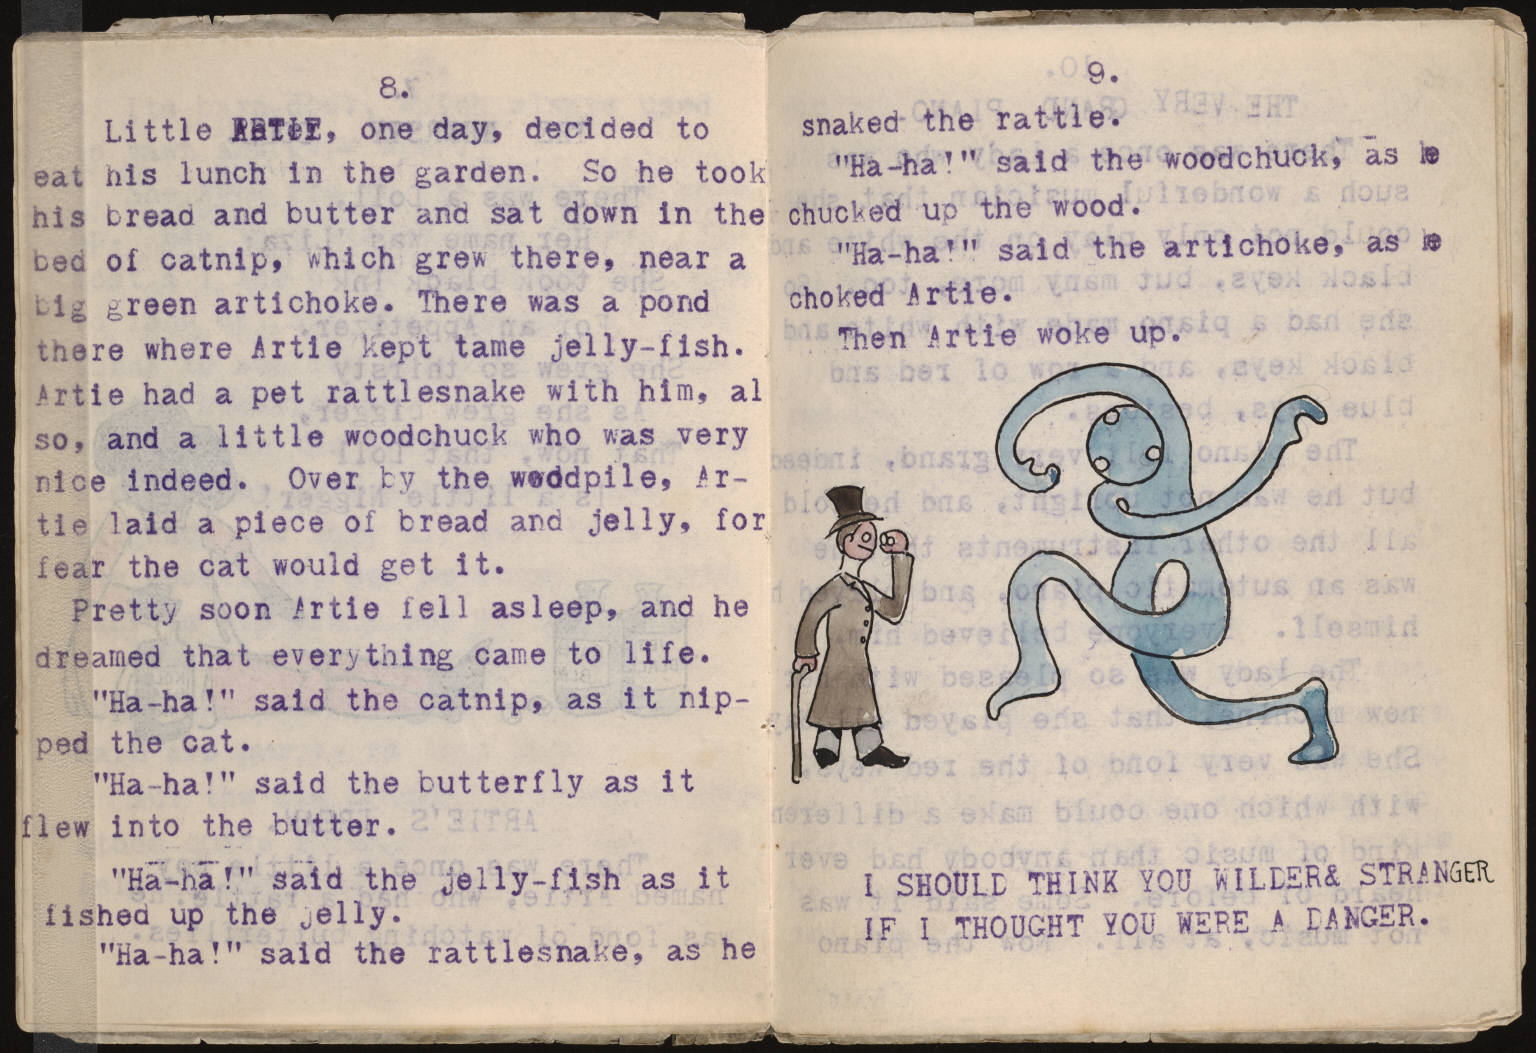 8.
Little ARTIE, one day, decided to
eat his lunch in the garden. So he took
his bread and butter and sat down in the
bed of catnip, which grew there, near a
big green artichoke. There was a pond
there where Artie kept tame jelly-fish.
Artie had a pet rattlesnake with him, al
so, and a little woodchuck who was very
nice indeed. Over by the woodpile, Ar-
tie laid a piece of bread and jelly, for
fear the cat would get it.
Pretty soon Artie fell asleep, and he
dreamed that everything came to life.
"Ha-ha!" said the catnip, as it nip-
ped the cat.
"Ha-ha!" said the butterfly as it
flew into the butter.
"Ha-ha!" said the jelly-fish as it
fished up the jelly.
"Ha-ha!" said the rattlesnake, as he
9.
snaked the rattle.
"Ha-ha!" said the woodchuck, as he
chucked up the wood.
"Ha-ha!" said the artichoke, as he
choked Artie.
Then Artie woke up.
I SHOULD THINK YOU WILDER& STRANGER
IF I THOUGHT YOU WERE A DANGER.